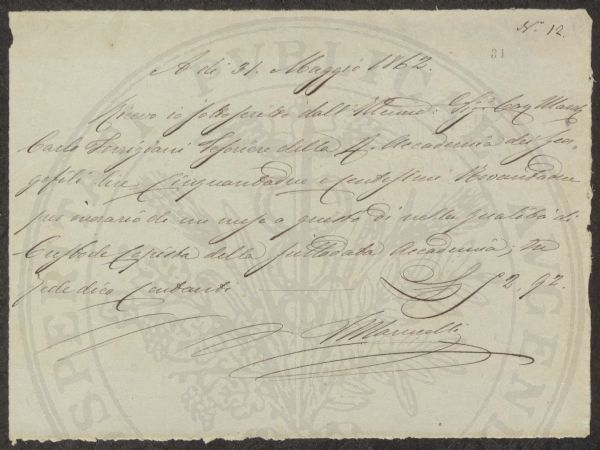 N. 12.
31
A dì 31. Maggio 1862.
Ricevo io sottoscritto dall'Illmo: Sigr. Cav. March.
Carlo Torrigiani Tesoriere della R. Accademia dei Geor-
gofili Lire Cinquantadue e Centesimi Novantadue
per onorario di un mese a questo dì nella qualità di
Custode Copista della sullodata Accademia; in
fede dico Contanti £ 52. 92.